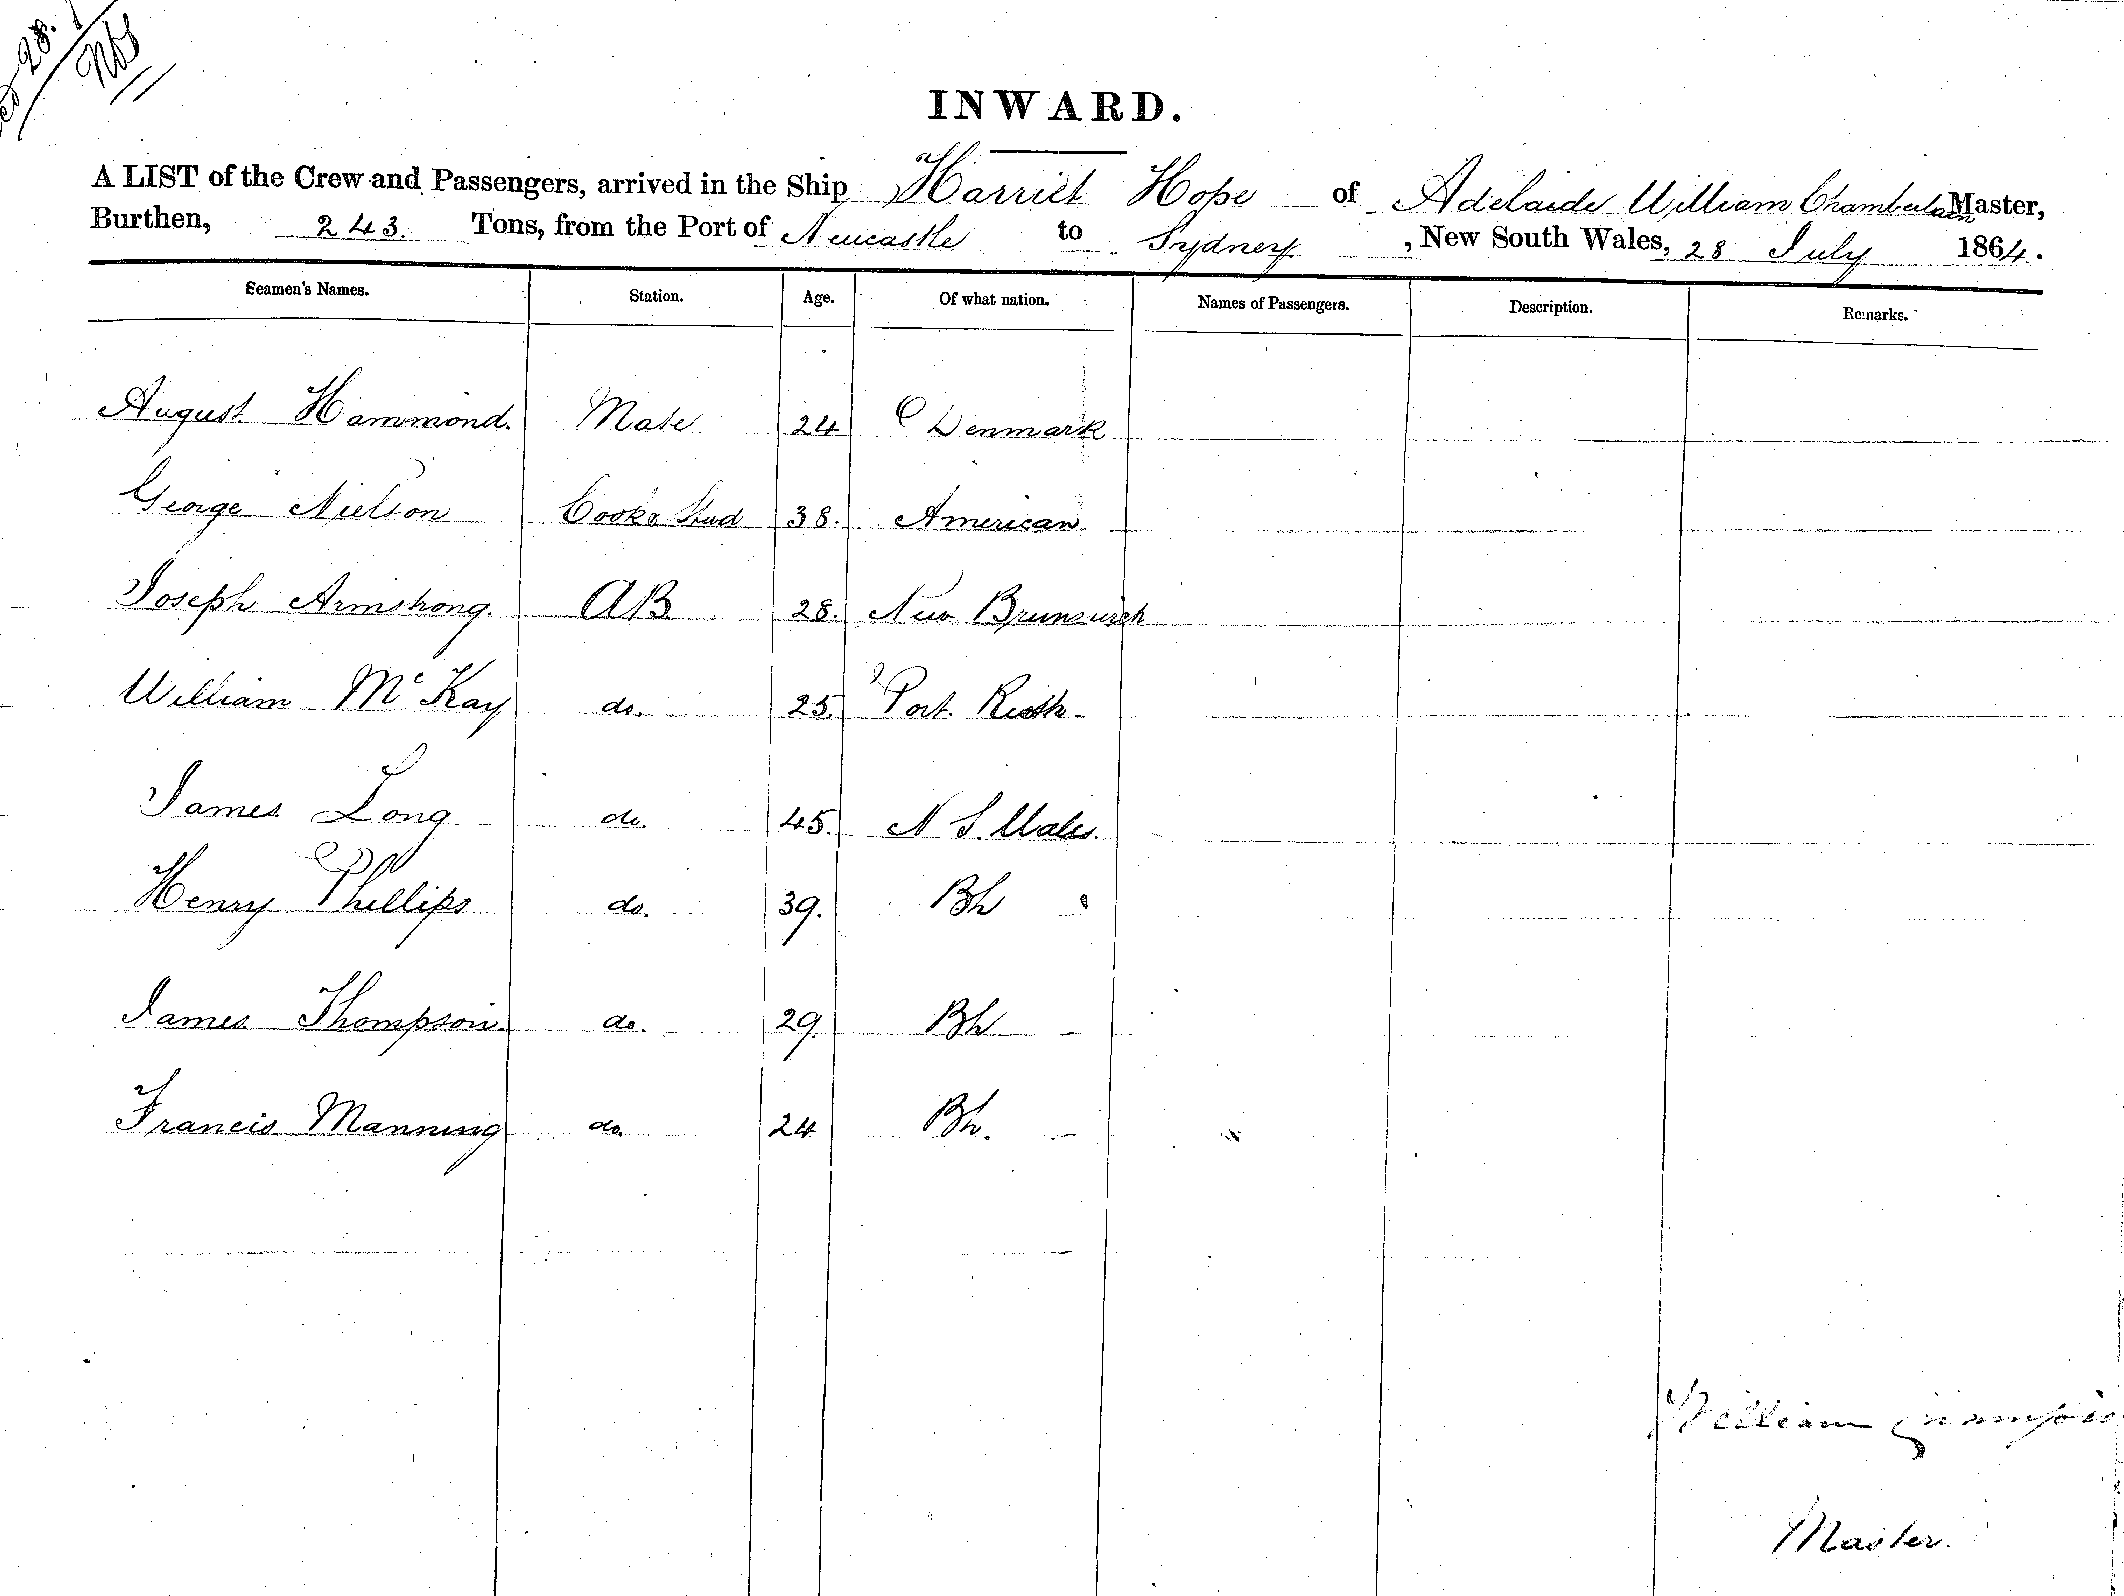 28.
INWARD.
A LIST of the Crew and Passengers, arrived in the Ship Harriet Hope of Adelaide William Chamberlain Master,
Burthen, 243. Tons, from the Port of Newcastle to Sydney , New South Wales, 28 July 1864.
Seamen's Names. Station. Age. Of what nation. Names of Passengers. Description. Remarks.
August Hammond. Mate 24 Denmark
George Nielson Cook & Stud 38. American
Joseph Armstrong. AB 28. New Brunswick
William McKay do. 25. Port
James Long do. 45. N S. Wales.
Henry Phillips do. 39. Bh
James Thompson. do. 29. Bh
Francis Manning do. 24 Bh.
William
Master.